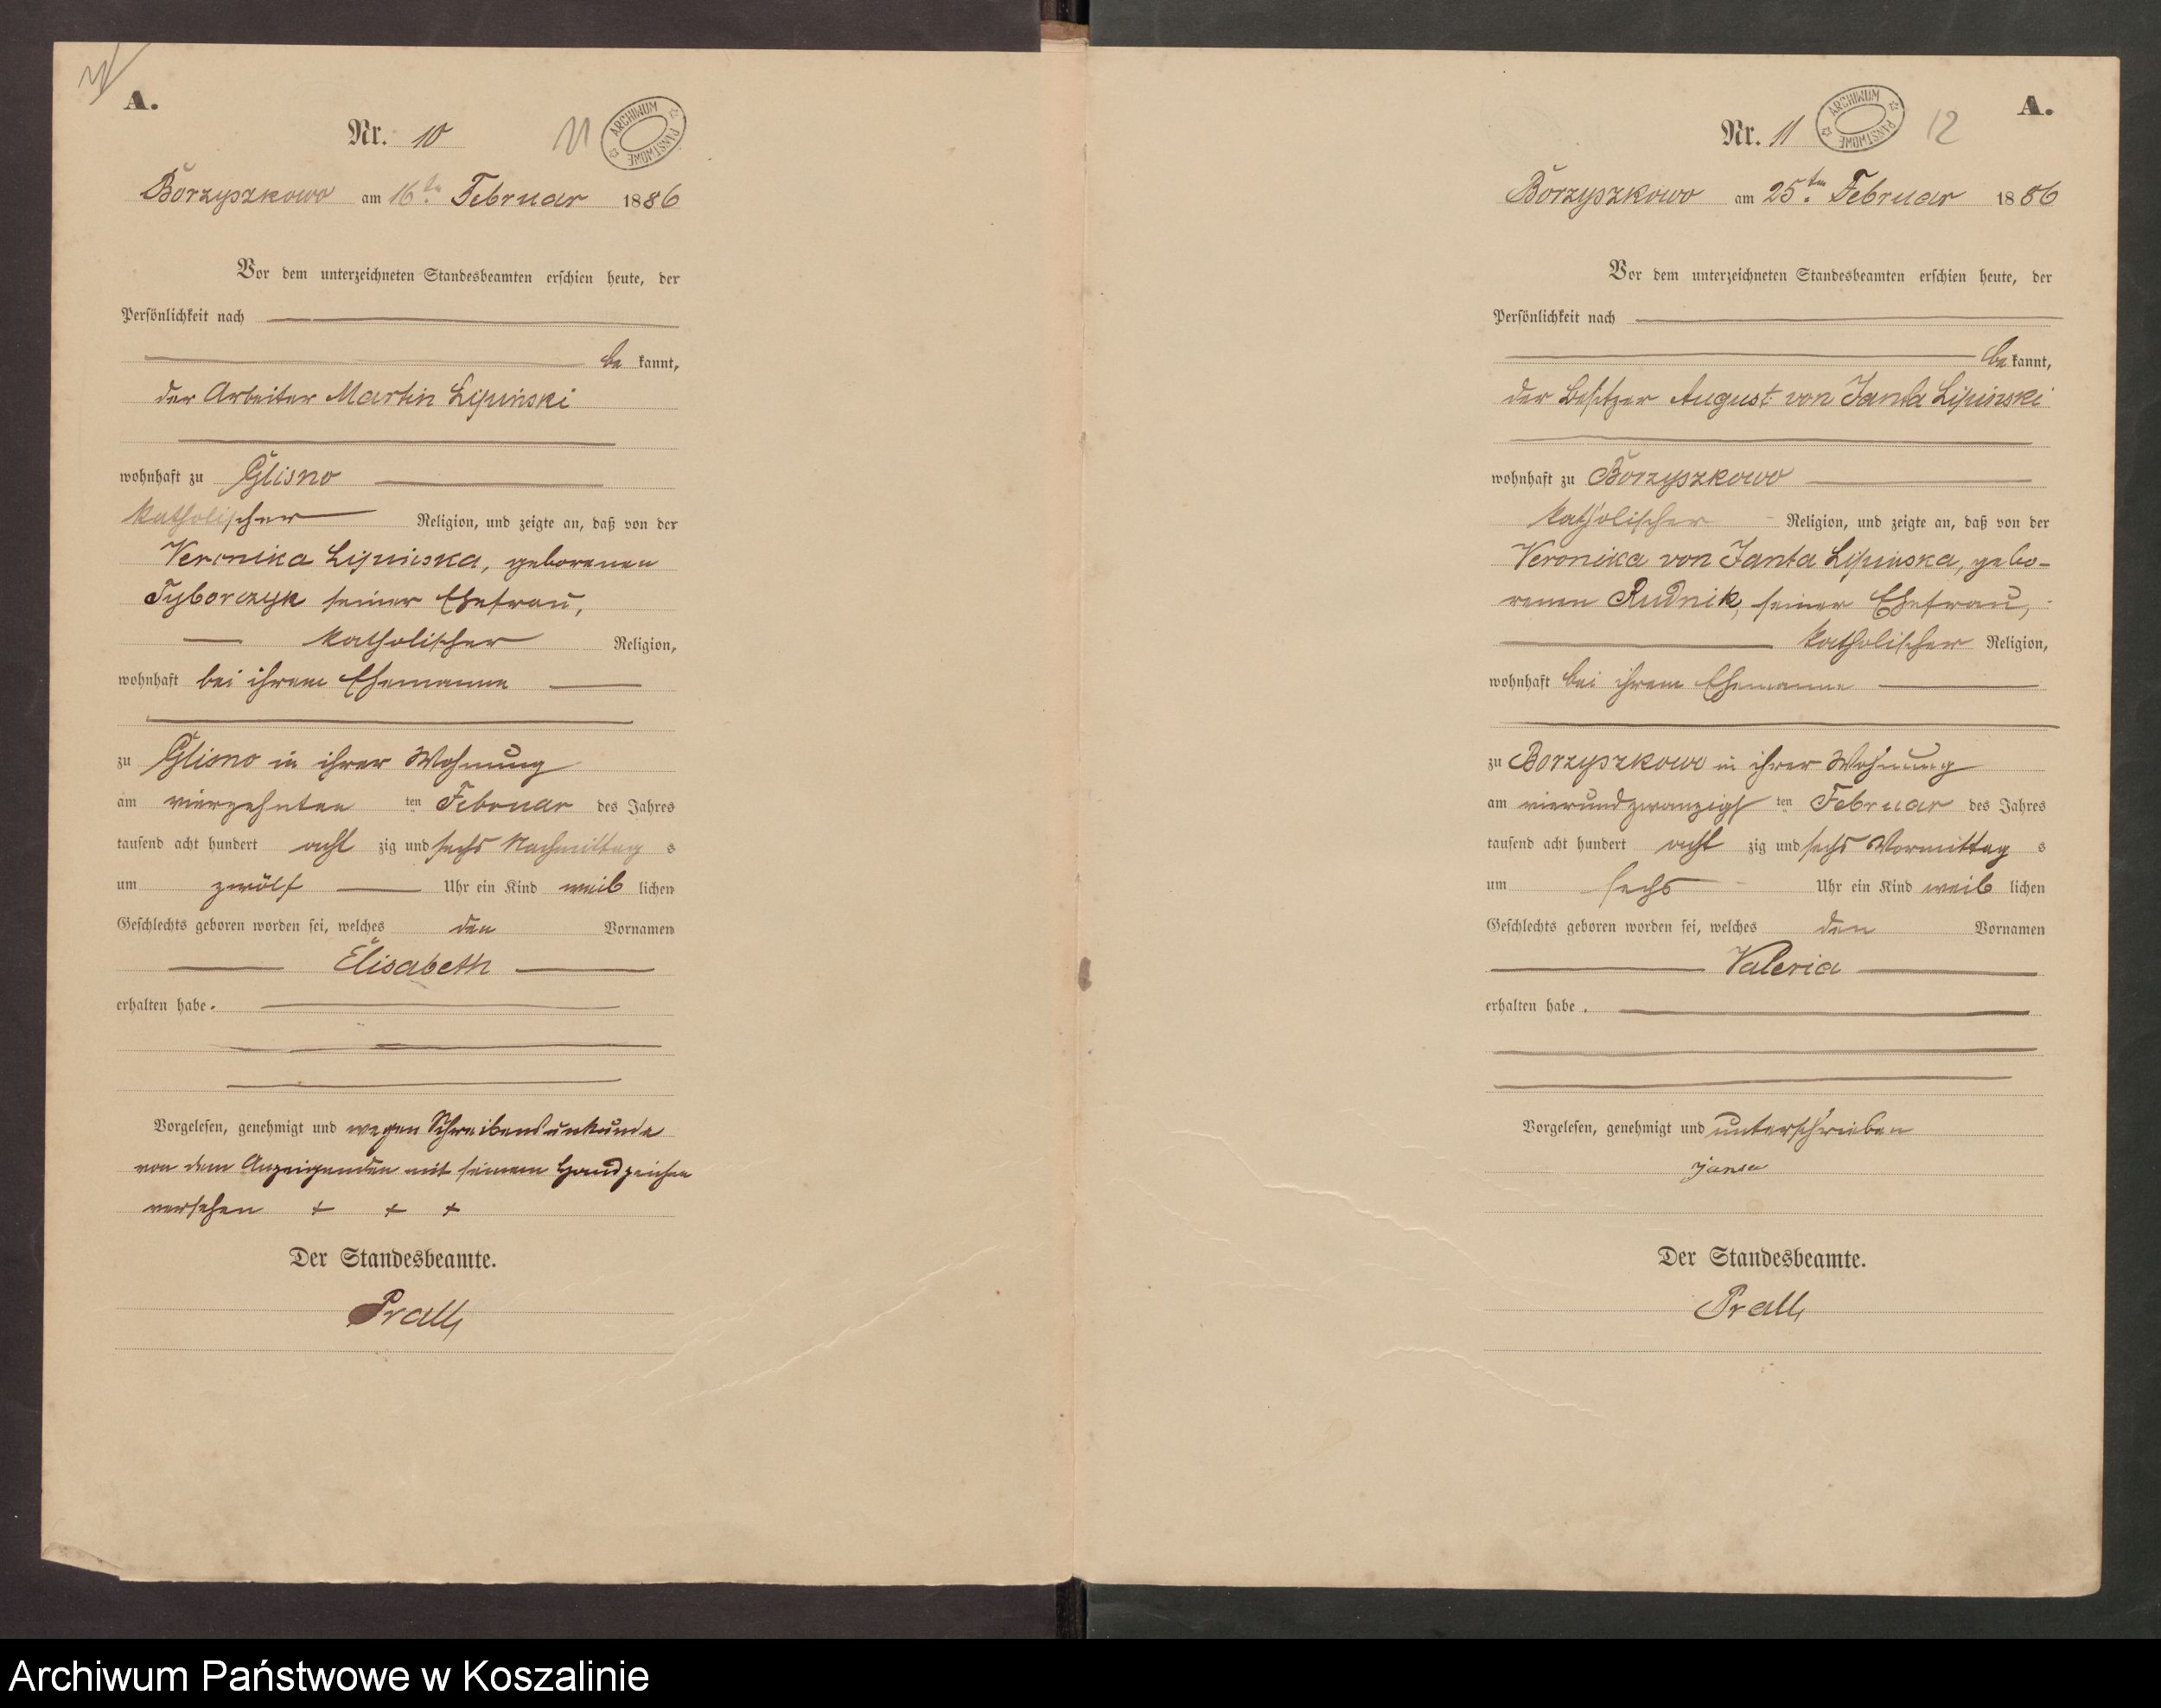 A.
Nr. 10
11
ARCHIWUM PAŃSTWOWE
Borzyszkowo am 16ten Februar 1886
Vor dem unterzeichneten Standesbeamten erschien heute, der
Persönlichkeit nach
be kannt,
der Arbeiter Martin Lipinski
wohnhaft zu Glisno
katholischer Religion, und zeigte an, daß von der
Veronika Lipinska, geborenen
Tyborczyk seiner Ehefrau,
katholischer Religion,
wohnhaft bei ihrem Ehemanne
zu Glisno in ihrer Wohnung
am vierzehnten ten Februar des Jahres
tausend acht hundert acht zig und sechs Nachmittag s
um zwölf Uhr ein Kind weib lichen
Geschlechts geboren worden sei, welches den Vornamen
Elisabeth
erhalten habe.
Vorgelesen, genehmigt und wegen Schreibensunkunde
von dem Anzeigenden mit seinem Handzeichen
versehen + + +
Der Standesbeamte.
Prall
A.
Nr. 11
ARCHIWUM PAŃSTWOWE
12
Borzyszkowo am 25ten Februar 1886
Vor dem unterzeichneten Standesbeamten erschien heute, der
Persönlichkeit nach
be kannt,
der Besitzer August von Janta Lipinski
wohnhaft zu Borzyszkowo
katholischer Religion, und zeigte an, daß von der
Veronika von Janta Lipinska, gebo-
renen Rudnik, seiner Ehefrau,
katholischer Religion,
wohnhaft bei ihrem Ehemanne
zu Borzyszkowo in ihrer Wohnung
am vierundzwanzigs ten Februar des Jahres
tausend acht hundert acht zig und sechs Vormittag s
um sechs Uhr ein Kind weib lichen
Geschlechts geboren worden sei, welches den Vornamen
Valeria
erhalten habe.
Vorgelesen, genehmigt und unterschrieben
Der Standesbeamte.
Prall
Archiwum Państwowe w Koszalinie